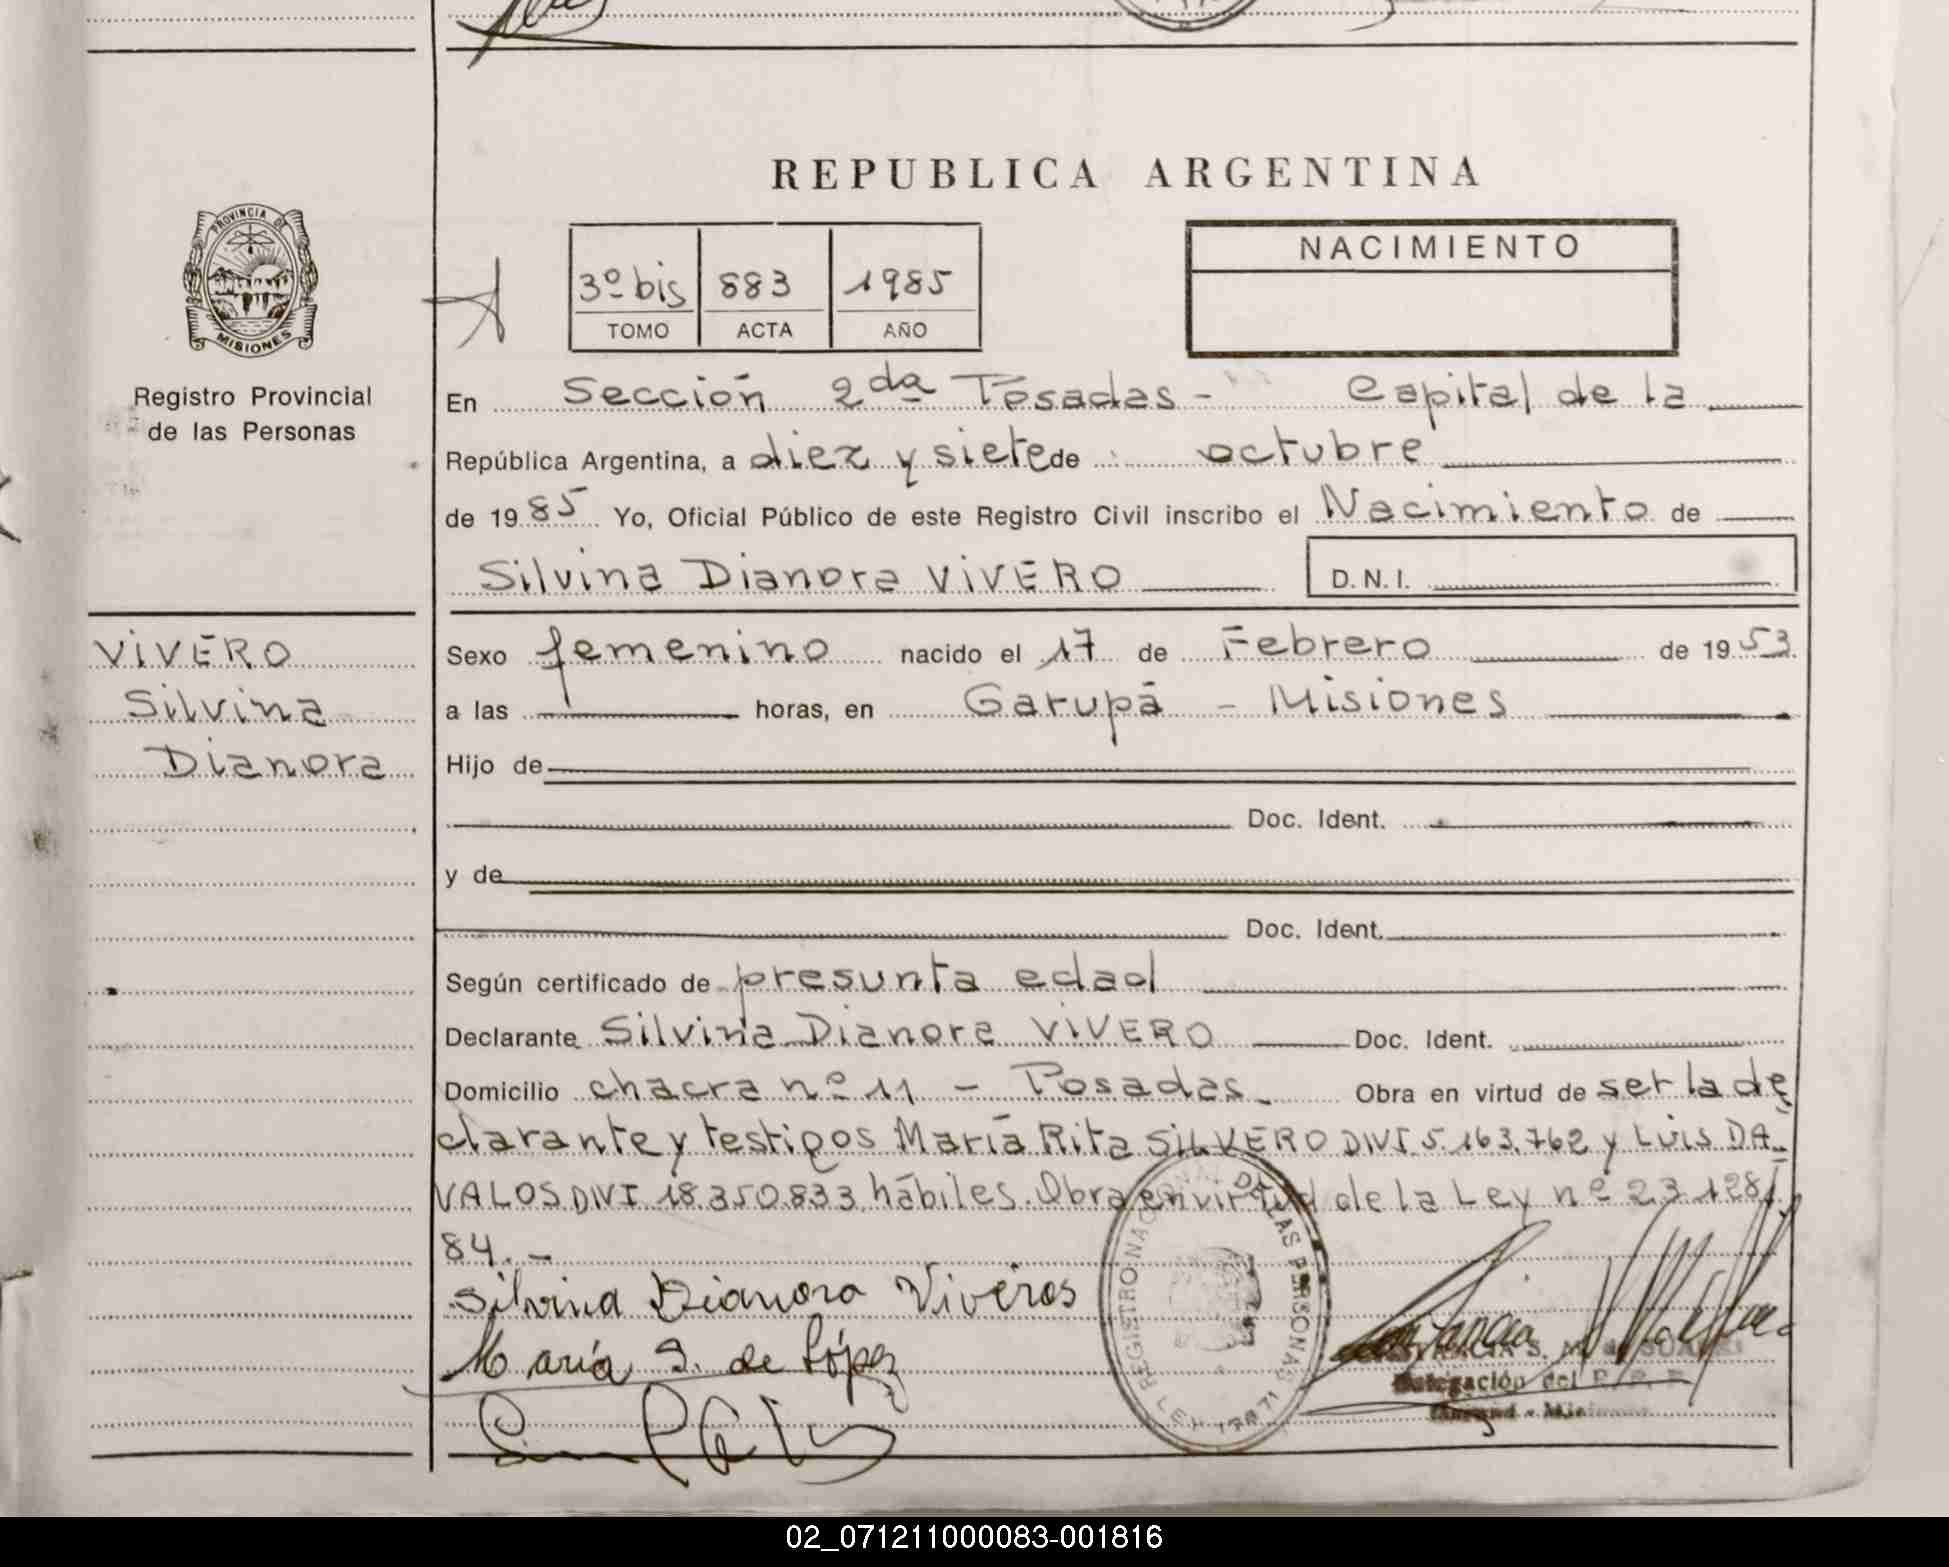 REPUBLICA ARGENTINA
PROVINCIA DE
MISIONES
Registro Provincial
de las Personas
3º bis 883 1985
TOMO ACTA AÑO
NACIMIENTO
En Sección 2da Posadas - Capital de la
República Argentina, a diez y siete de octubre
de 1985 Yo, Oficial Público de este Registro Civil inscribo el Nacimiento de
Silvina Dianora VIVERO D.N.I.
VIVERO
Silvina
Dianora
Sexo femenino nacido el 17 de Febrero de 1953
a las horas, en Garupá - Misiones
Hijo de
Doc. Ident.
y de
Doc. Ident.
Según certificado de presunta edad
Declarante Silvina Dianora VIVERO Doc. Ident.
Domicilio chacra nº 11 - Posadas. Obra en virtud de ser la de
clarante y testigos María Rita SILVERO DNI 5.163.762 y Luis DA
VALOS DNI 18.350.833 hábiles. Obra en virtud de la Ley nº 23128/
84.-
Silvina Dianora Viveros
María S. de López
REGISTRO NACIONAL DE LAS PERSONAS
LEY 17671
Delegación del
02_071211000083-001816